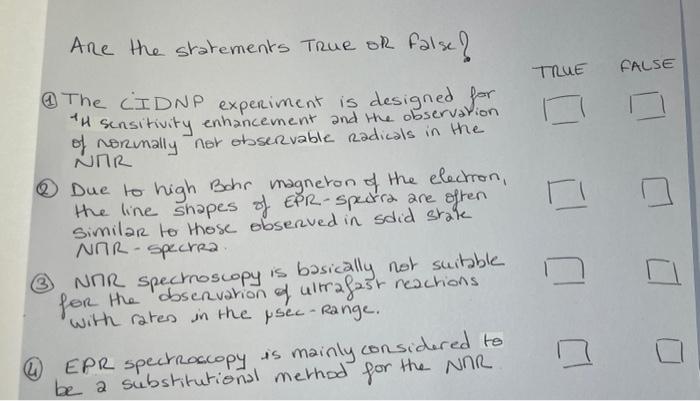 Are the statements True or False?
TRUE FALSE
① The CIDNP experiment is designed for
¹H sensitivity enhancement and the observation
of normally not observable radicals in the
NMR
② Due to high Bohr magneton of the electron,
the line shapes of EPR-spectra are often
similar to those observed in solid state
NMR-spectra.
③ NMR spectroscopy is basically not suitable
for the observation of ultrafast reactions
with rates in the μsec-Range.
④ EPR spectroscopy is mainly considered to
be a substitutional method for the NMR